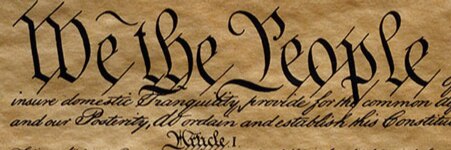 We the People
insure domestic Tranquility, provide for the common
and our Posterity, do ordain and establish this Constitu
Article I.